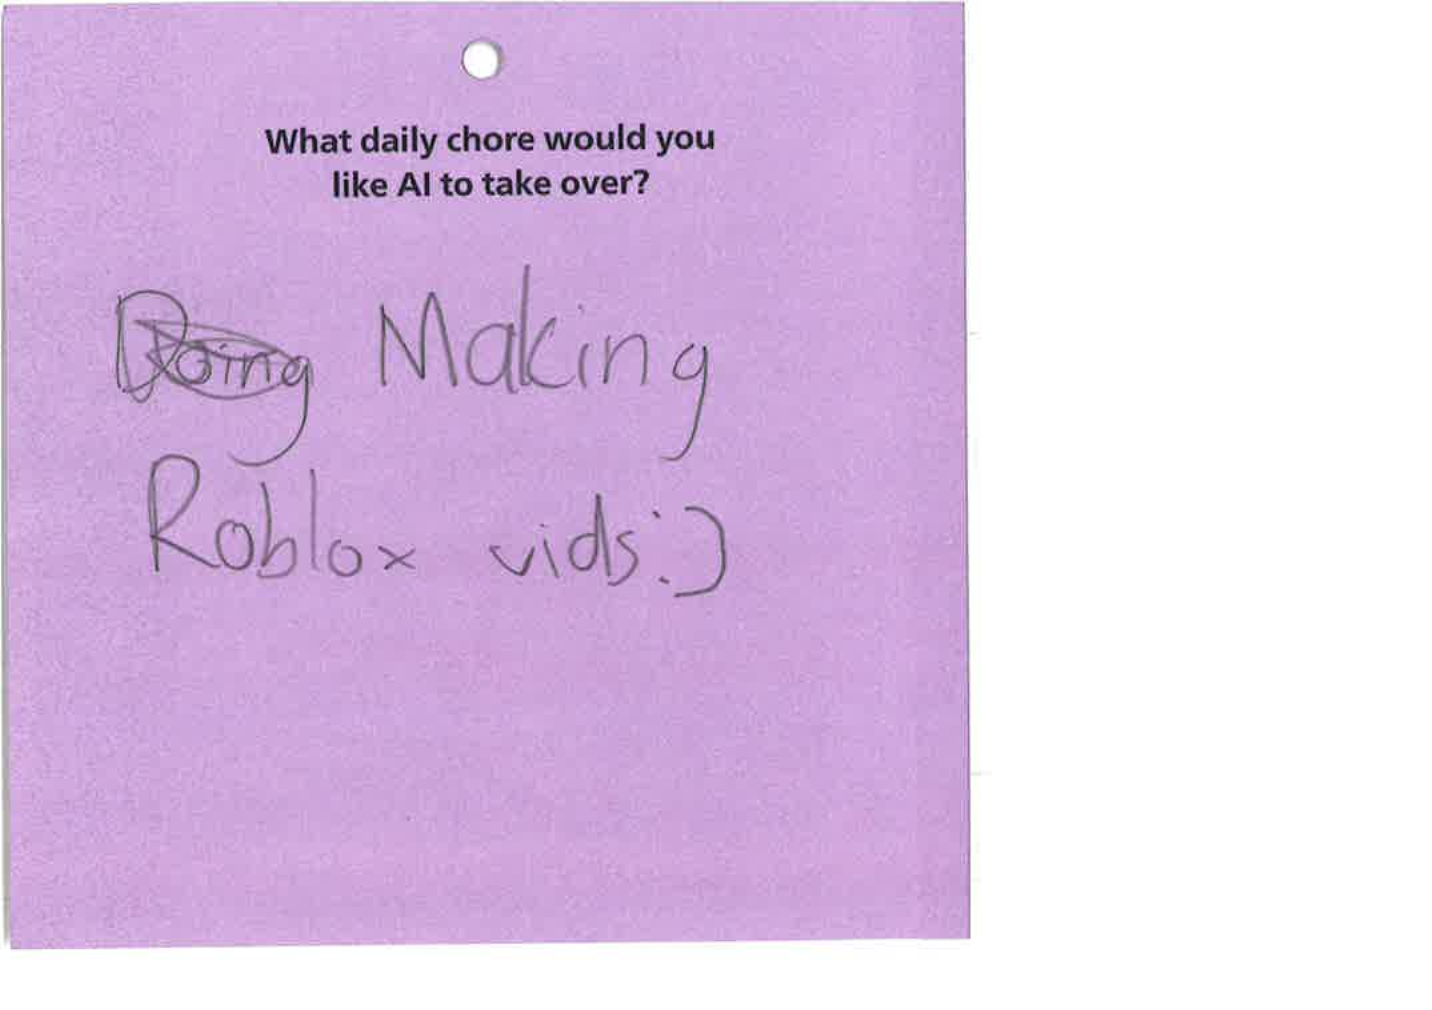 What daily chore would you
like AI to take over?
Doing Making
Roblox vids:)